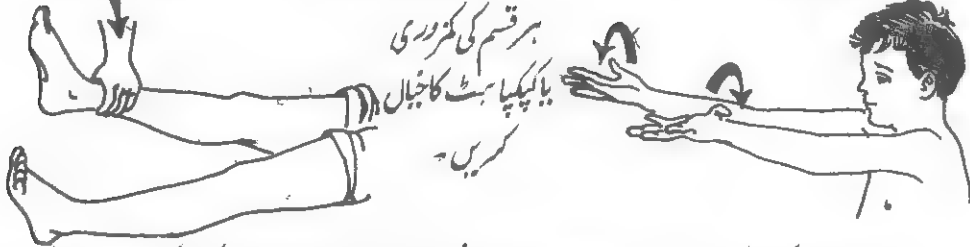 ہر قسم کی کمزوری
یا کپکپاہٹ کا خیال
کریں۔